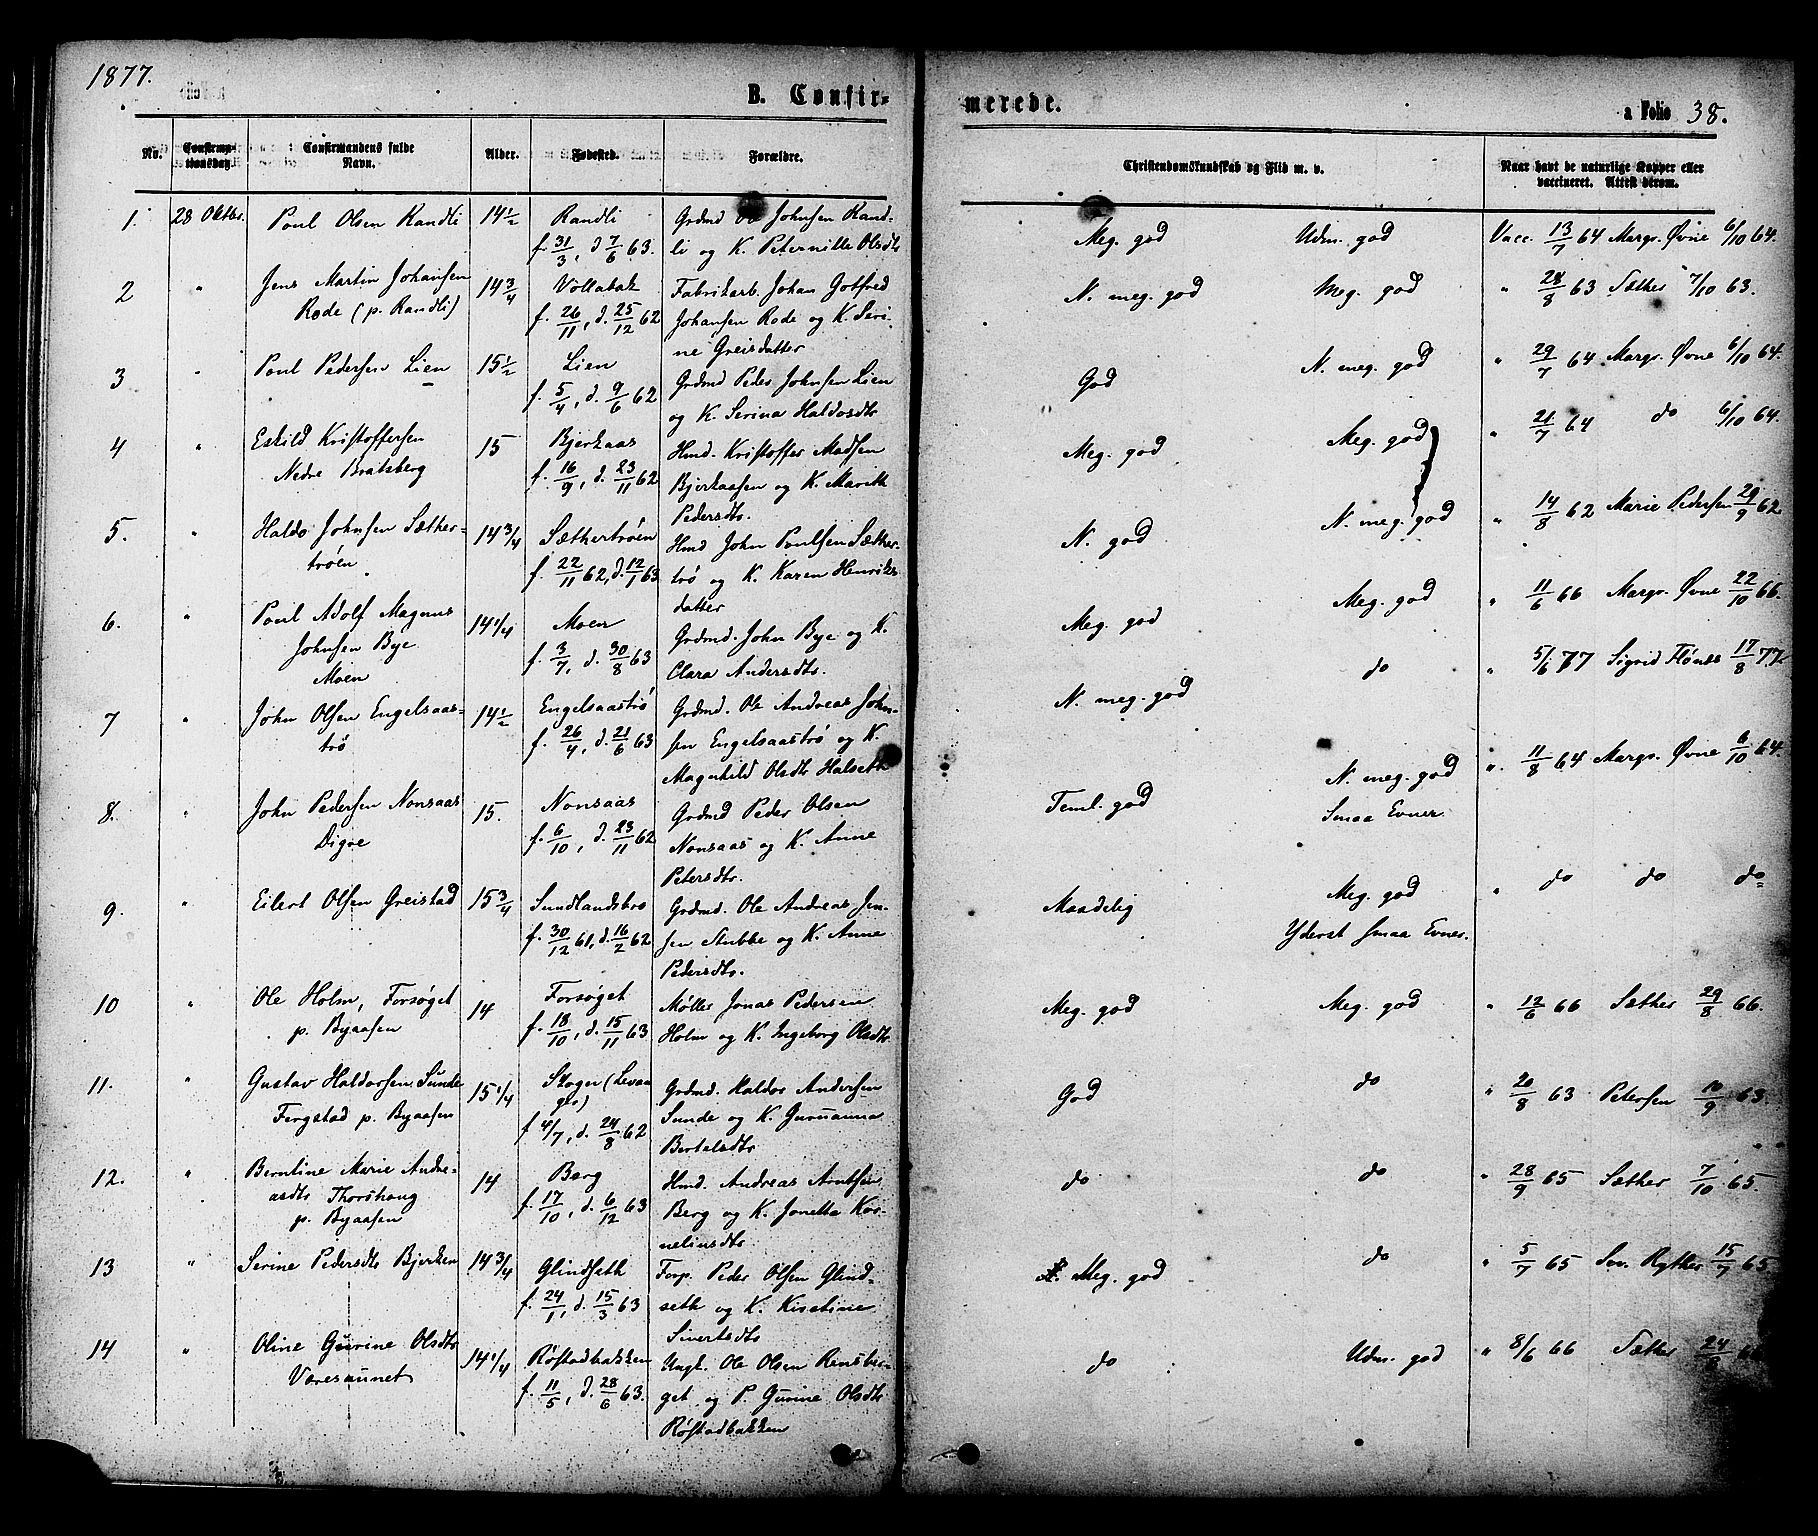 1877.
B. Confir-
merede.
a Folio 38.
No.
Confirma-
tionsdag.
Confirmandens fulde
Navn.
Alder.
Fødested.
Forældre.
Christendomskundskab og Flid m. v.
Naar havt de naturlige Kopper eller
vaccineret. Attest derom.
1. 28 Oktbr. Poul Olsen Randli 14 1/2 Randli
f. 31/3, d. 7/6 63.
Grdmd Ole Johnsen Rand-
li og K. Peternille Olsdtr
Meg. god Udm. god Vacc. 13/7 64 Margr. Øvne 6/10 64.
2 " Jens Martin Johansen
Rode (p. Randli)
14 3/4 Vollabak
f. 26/11, d. 25/12 62
Fabrikarb. Johan Gotfred
Johansen Rode og K. Seri-
ne Greisdatter
N. meg. god Meg. god " 28/8 63 Sæther 7/10 63.
3 " Poul Pedersen Lien 15 1/2 Lien
f. 5/4, d. 9/6 62
Grdmd Peder Johnsen Lien
og K. Serina Haldosdtr
God N. meg. god " 29/7 64 Margr. Øvne 6/10 64.
4 " Eskild Kristoffersen
Nedre Bratsberg
15 Bjerkaas
f. 16/9, d. 23/11 62
Hmd. Kristoffer Madsen
Bjerkaasen og K. Marith
Pedersdtr.
Meg. god Meg. god " 21/7 64 do 6/10 64.
5. " Haldo Johnsen Sæther-
trøen
14 3/4 Sæthertrøen
f. 22/11 62, d. 12/1 63
Hmd John Poulsen Sæther-
trø og K. Karen Henriks
datter
N. god N. meg. god " 14/8 62 Marie Pedersen 29/9 62
6. " Poul Adolf Magnus
Johnsen Bye
Moen
14 1/4 Moen
f. 3/7, d. 30/8 63
Grdmd. John Bye og K.
Clara Andersdtr.
Meg. god Meg. god " 11/6 66 Margr. Øvne 22/10 66.
7 " John Olsen Engelsaas-
trø
14 1/2 Engelsaastrø
f. 26/4, d. 21/6 63
Grdmd. Ole Andreas John-
sen Engelsaastrø og K.
Magnhild Olsdtr Halseth
N. meg. god do " 5/6 77 Sigrid Flønes 17/8 77.
8. " John Pedersen Nonsaas
Digre
15. Nonsaas
f. 6/10, d. 23/11 62
Grdmd Peder Olsen
Nonsaas og K. Anne
Petersdtr.
Teml. god N. meg. god
Smaa Evner
". 11/8 64 Margr. Øvne 6/10 64.
9. " Eilert Olsen Greistad 15 3/4 Sundlandsbro
f. 30/12 61, d. 16/2 62
Grdmd. Ole Andreas Jen-
sen Stubbe og K. Anne
Pedersdtr.
Maadelig Meg. god
Yderst smaa Evner.
" do do do
10 " Ole Holm, Forsøget
p. Byaasen
14 Forsøget
f. 18/10, d. 15/11 63
Møller Jonas Pedersen
Holm og K. Ingeborg Olsdtr.
Meg. god Meg. god " 12/6 66 Sæther 29/8 66.
11. " Gustav Haldorsen Sunde
Fergstad p. Byaasen
15 1/4 Skogn (Levan
ger)
f 4/7, d. 24/8 62
Grdmd. Haldor Andersen
Sunde og K. Gurianna
Bertelsdtr
God do " 20/8 63 Petersen 10/9 63.
12. " Berntine Marie Andre-
asdtr Thorshaug
p. Byaasen
14 Berg
f. 17/10, d. 6/12 63
Hmd. Andreas Arntsen
Berg og K. Jonetta Kor-
neliusdtr
do do " 28/9 65 Sæther 7/10 65.
13 " Serine Pedersdtr Bjerken 14 3/4 Glindseth
f. 24/1, d. 15/3 63
Forp. Peder Olsen Glind-
seth og K. Kirstine
Sivertsdtr
Meg. god do " 5/7 65 Sev. Rytter 15/7 65
14 " Oline Gurine Olsdtr
Væresaunet
14 1/4 Røstadbakken
f. 11/5, d. 28/6 63.
Ungk. Ole Olsen Rensbier-
get og P. Gurine Olsdtr
Røstadbakken
do Udm. god " 8/6 66 Sæther 24/8 66